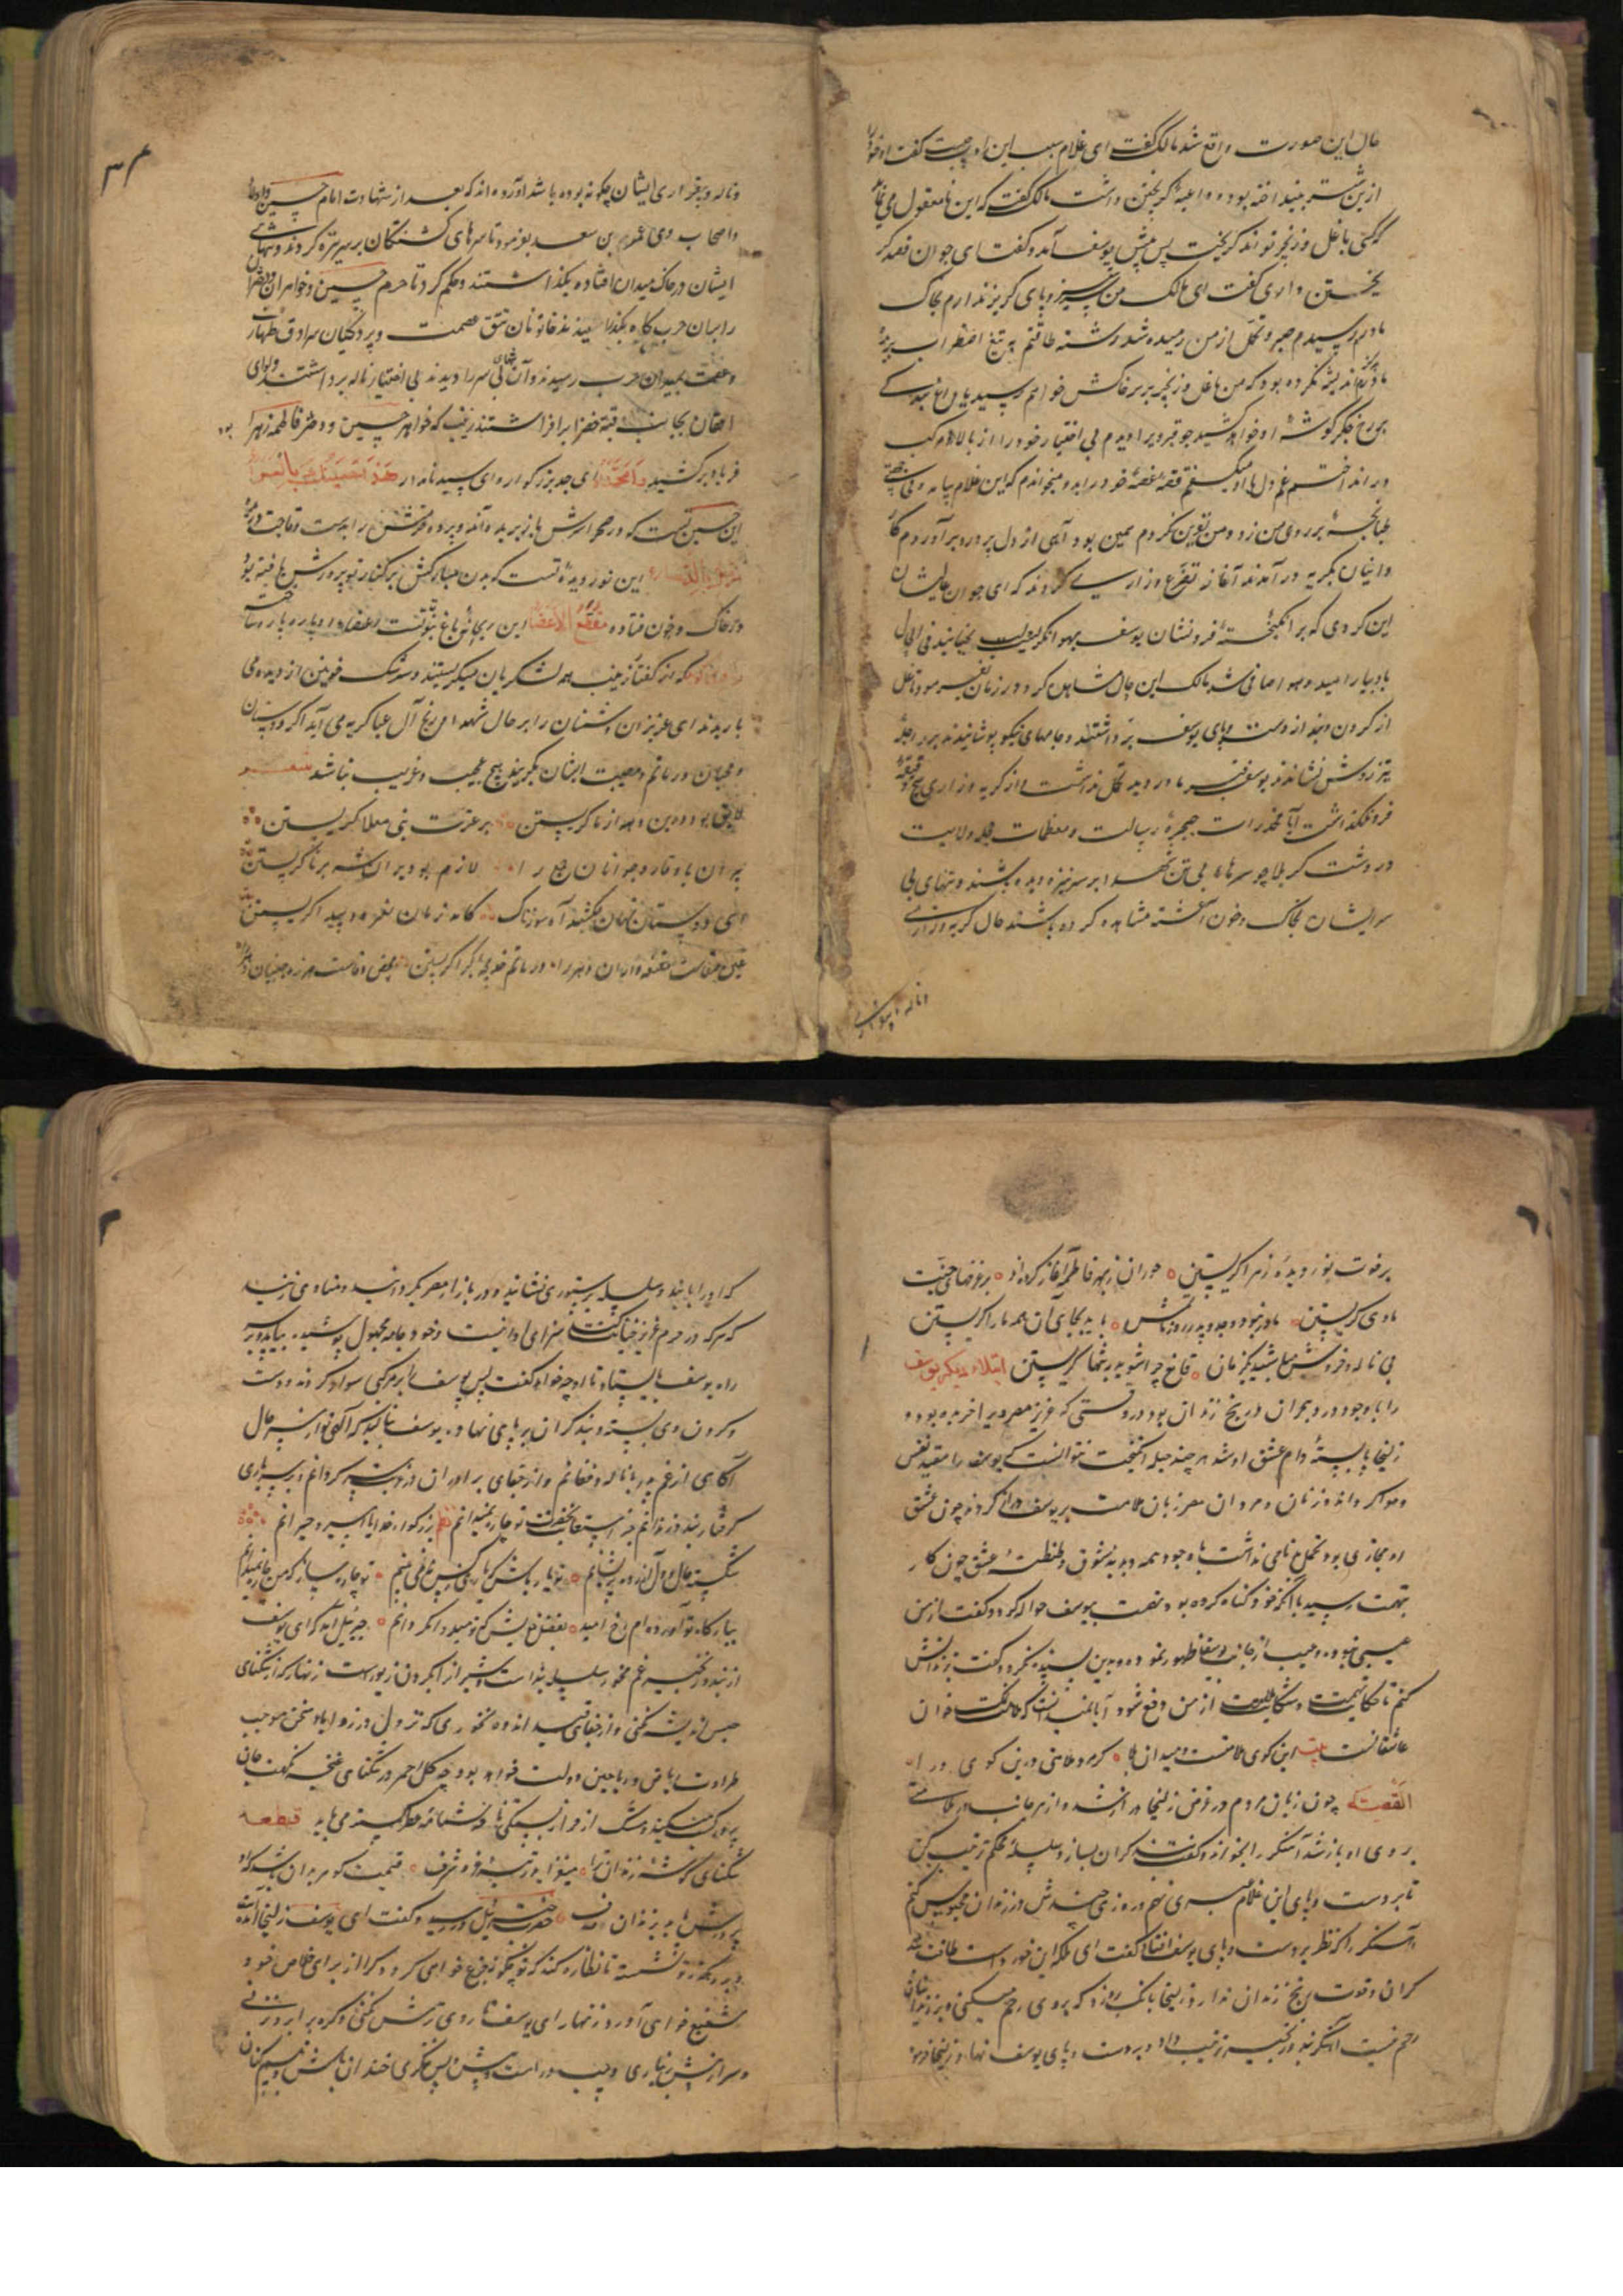 حال این صورت واقع شد مالک گفت ای غلام سبب این اوچیست گفت او خود را
از پشت شتر بینداخته بود و داعیهٔ گریختن داشت مالک گفت که این نامعقول می نماید
که کسی با غل و زنجیر تواند گریخت پس پیش یوسف آمد و گفت ای جوان قصد گر
یختن داری گفت ای مالک من سر ستیز و پای گریز ندارم بخاک
مادرم رسیدم صبر و تحمل از من رمیده شد و رشته طاقتم به تیغ اضطراب بریده
مادرم هرگز اندیشه نکرده بود که من با غل و زنجیر بر سر خاکش خواهم رسید یا داغ بندگی
بر رخ جگر گوشهٔ او خواهند کشید چو قبر ویرا دیدم بی اختیار خود را از بالای مرکب
در انداختم غم دل با او میگفتم قصهٔ غصهٔ خود را بدو میخواندم که این غلام بیامد و بی جهتی
طبانچهٔ بر روی من زد و من نفرین نکردم همین بود آهی از دل پر درد برآوردم
کاروانیان بگریه در آمدند آغاز تضرع و زاری کردند که ای جوان عالیشان
این گردی که بر انگیختهٔ فرو نشان یوسف بهوا نگریست لب بجنبانید فی الحال
باد بیارامید و هوا صافی شد مالک این حال مشاهده کرد در زمان بفرمود تا غل
از گردن و بند از دست و پای یوسف برداشتند و جامهای نیکو پوشانیدند بر راحلهٔ
تیز روش نشاندند یوسف قبر مادر دید تحمل نداشت و از گریه و زاری هیچ دقیقهٔ
فرو نگذاشت آیا مخدرات حجرهٔ رسالت و معظمات حجلهٔ ولایت
در دشت کربلا چو سرهاء بی تن شهدا بر سر نیزه دیده باشند و تنهای بی
سر ایشان بخاک و خون آغشته مشاهده کرده باشند حال گریه و زاری
و ناله و بیقراری
و ناله و بیقراری ایشان چگونه بوده باشد آورده اند که بعد از شهادت امام حسین و اولاد
و اصحاب وی عمر بن سعد بفرمود تا سرهای کشتگان بر سر نیزه کردند و تنهای
ایشان در خاک میدان افتاده بگذاشتند و حکم کرد تا حرم حسین و خواهران و دختران
را بمیان حرب گاه بگذرانیدند خاتونان تتق عصمت و پردگیان سرادق طهارت
و عفت بمیدان حرب رسیدند و آن تنهای بی سر را دیدند بی اختیار ناله برداشتند و لوای
افغان بجانب قبهٔ خضرا برافراشتند زینب که خواهر حسین و دختر فاطمه زهرا بود
فریاد برکشید وامحمداه ای جد بزرگوار و ای سید نامدار هذا حسینک بالعراء
این حسین تست که در صحرا سرش باز بریده اند و پرده حرمتش را بدست وقاحت دریده
این نور دیدهٔ تست که بدن مبارکش بر کنار تو پرورش یافته بود
در خاک و خون فتاده مقطع الاعضا این ریحانهٔ باغ نبوتت اعضا او پاره پاره ساخته
که از گفتار زینب همه لشکریان میگریستند و سرشک خونین از دیده می
باریدند ای عزیزان دشمنان را بر حال شهدا و رنج آل عبا گریه می آید اگر دوستان
و محبان در ماتم و مصیبت ایشان بگریند هیچ عجیب و غریب نباشد شعر
لایق بود درین دهه از ما گریستن بر عترت نبی معلا گریستن
پیران با وقار و جوانان جمع را لازم بود بر آن شه برنا گریستن
ای دوستان نهان بکشید آه سوزناک کامد زمان نعره و پیدا گریستن
عین عطاست خدیجهٔ کبرا گریستن محض وفاست
بر فوت نور دیدهٔ زهرا گریستن حوران ز بهر فاطمه آغاز کرده اند بر غرفهای جنت
ماوی گریستن مادر نبود و جد و پدر روز ماتمش باید بجای آن همه ما را گریستن
بی ناله و خروش مباشید یکزمان قانع چرا شوید بتنها گریستن ابتلاء دیگر یوسف
را با وجود درد هجران در رنج زندان بود در وقتی که عزیز مصر ویرا خریده بود و
زلیخا پابستهٔ دام عشق او شد هر چند حیله انگیخت نتوانست که یوسف را مقید نفس
و هوا گرداند و زنان و مردان مصر زبان ملامت بر یوسف دراز کردند چون عشق
او مجازی بود تحمل بدنامی نداشت با وجود همه دبدبه شوق و طنطنهٔ عشق چون کار
بتهمت رسید با آنکه خود گناه کرده بود تهمت بیوسف حواله کرد و گفت از من
عیبی نبود و عیب از جانب یوسف ظهور نمود و بدین بسنده نکرد و گفت بزندانش
کنم تا حکایت تهمت و شکایت ملامت از من دفع شود آیا نمیدانست که ملامت خوان
عاشقانست بیت این کوی ملامت و میدان بلا گو مرد ملامتی درین کوی در آ
القصه چون زبان مردم در عرض زلیخا دراز شد و از هر جانب در ملامتی
بر وی او باز شد آهنگر را بخواند و گفت بند گران بساز و سلسلهٔ محکم ترتیب کن
تا بر دست و پای این غلام عبری نهم و روزی چندش در زندان محبوس کنم
آهنگر را که نظر بر دست و پای یوسف افتاد گفت ای ملکه این خورد است طاقت بند
گران و قوت رنج زندان ندارد زلیخا بانک بر وی زد که بر وی رحم میکنی و بر زندانیان
رحم نیست آهنگر بند و زنجیر ترتیب داد و بر دست و پای یوسف نهاد و زلیخا فرمود
که او را با بند و سلسله بر ستوری نشانند و در بازار مصر بگردانند و منادی زنند
که هر که در حرم عزیز خیانت کند سزای او اینست و خود جامه مجهول پوشیده بیامد و بر سر
راه یوسف بایستاد تا او چه خواهد گفت پس یوسف را بر مرکبی سوار کردند و دست
و گردن وی بسته و بند گران بر پای نهاده یوسف بنالید که الهی تو از سر حال
آگاهی از غم پدر با ناله و فغانم و از جفای برادران در غربت سرگردانم و در سر پای
گرفتار بند و زندانم جز استعانت بحضرت تو چاره نمیدانم نظم بزرگوار خدایا اسیر و حیرانم
شکسته حال و دل آزرده و پریشانم تو یار باش که یاری ز کس نمی بینم تو چاره ساز که من چاره نمیدانم
ببارگاه تو آورده ام رخ امید بفضل خویش که نومید وا مگردانم جبرئیل آمد که ای یوسف
از بند و زنجیر غم مخور سلسله بند است و شیر از در گردن زیورست زنهار که از تنگنای
حبس اندیشه نکنی و از جفای قید اندوه نخوری که نزول در زوایاء سجن موجب
طراوت ریاض و ریاحین دولت خواهد بود چه گل احمر در تنگنای غنچه نکهت جان
پرور کسب میکند و مشک اذفر از بستگی نافه شمامهٔ عطر گستر می یابد قطعه
تنگنای گوشهٔ زندان ترا میفزاید رتبهٔ قدر و شرف قیمت گوهر بدان باشد که او
پرورش یابد بزندان صدف حضرت جبرئیل در رسید و گفت ای یوسف زلیخا آمده است
و بر رهگذر تو نشسته تا نظاره کند که تو چگونه جزع خواهی کرد و کرا از برای خلاص خود
شفیع خواهی آورد زنهار ای یوسف تا روی ترش نکنی و گره بر ابرو نزنی
و سر از پیش بر نیاری و چپ و راست و پیش و پس ننگری خندان باش و تبسم کنان